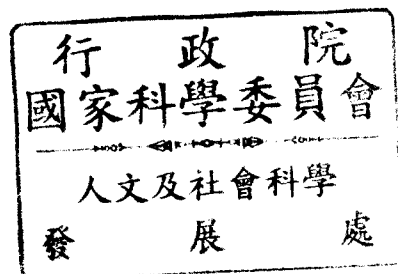 行政院
國家科學委員會
人文及社會科學
發展處